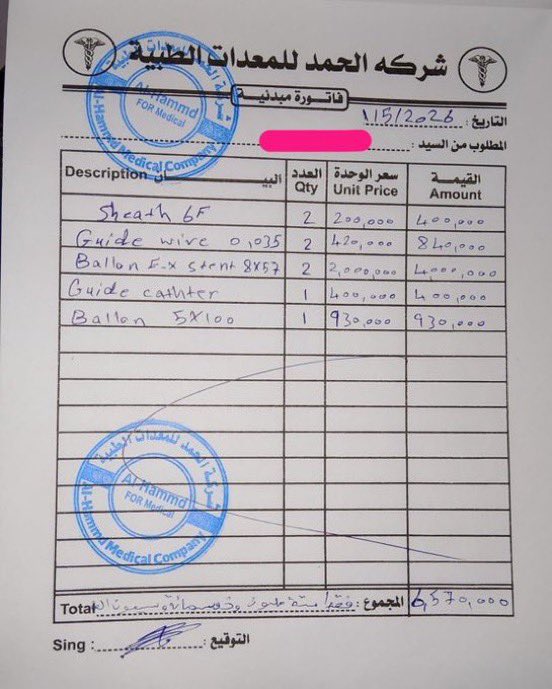 شركه الحمد للمعدات الطبية
فاتورة مبدئية
التاريخ : 1/5/2026
المطلوب من السيد :
Description البيـــــــان العدد Qty سعر الوحدة Unit Price القيمة Amount
Sheath 6F 2 200,000 400,000
Guide wire 0,035 2 420,000 840,000
Ballon E-x stent 8x57 2 2,000,000 4,000,000
Guide cathter 1 400,000 400,000
Ballon 5x100 1 930,000 930,000
شركة الحمد للمعدات الطبية
Al Hammd
FOR Medical
Al-Hammd Medical Company
شركة الحمد للمعدات الطبية
Al Hammd
FOR Medical
Al-Hammd Medical Company
Total فقط ستة مليون وخمسمائة وسبعون المجموع : 6,570,000
Sing : التوقيع :